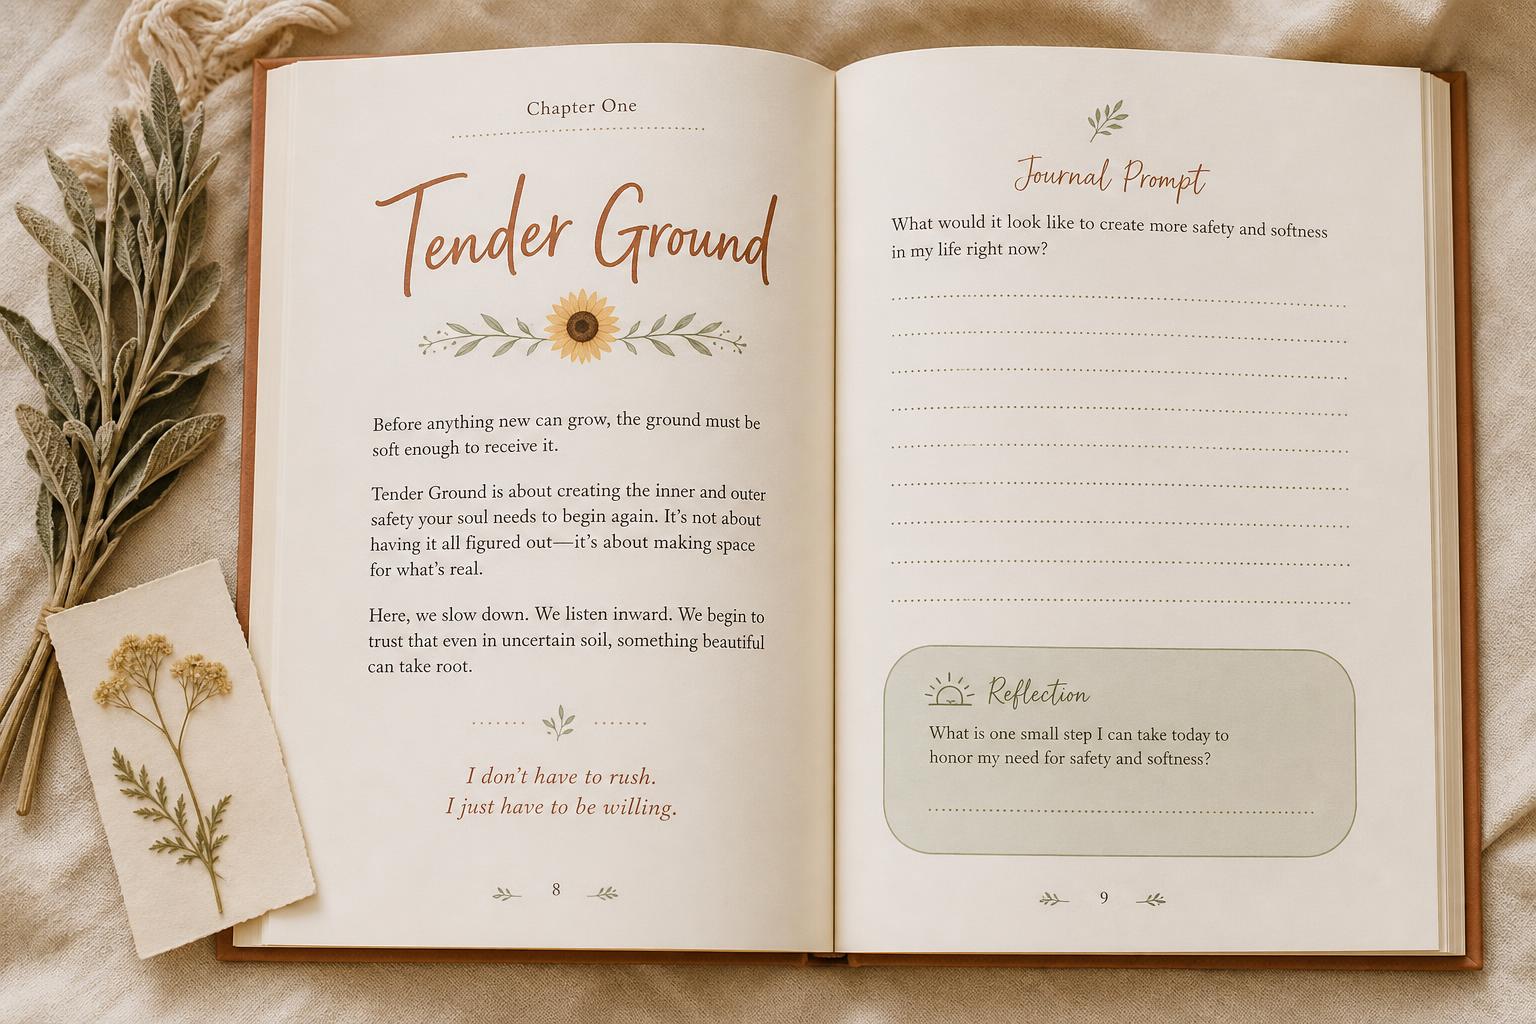 Chapter One
Tender Ground
Before anything new can grow, the ground must be
soft enough to receive it.
Tender Ground is about creating the inner and outer
safety your soul needs to begin again. It's not about
having it all figured out—it's about making space
for what's real.
Here, we slow down. We listen inward. We begin to
trust that even in uncertain soil, something beautiful
can take root.
I don't have to rush.
I just have to be willing.
8
Journal Prompt
What would it look like to create more safety and softness
in my life right now?
Reflection
What is one small step I can take today to
honor my need for safety and softness?
9